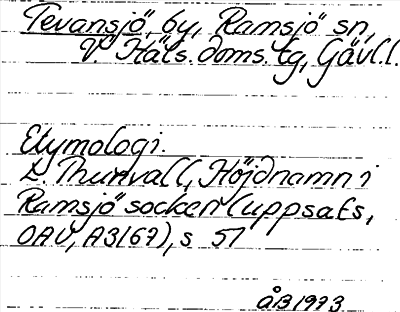 Tevansjö, by, Ramsjö sn,
V. Häls. doms. tg, Gävl.l.
Etymologi.
L. Thunvall, Höjdnamn i
Ramsjö socken (uppsats,
OAU, A3167), s 51
ÅB 1993